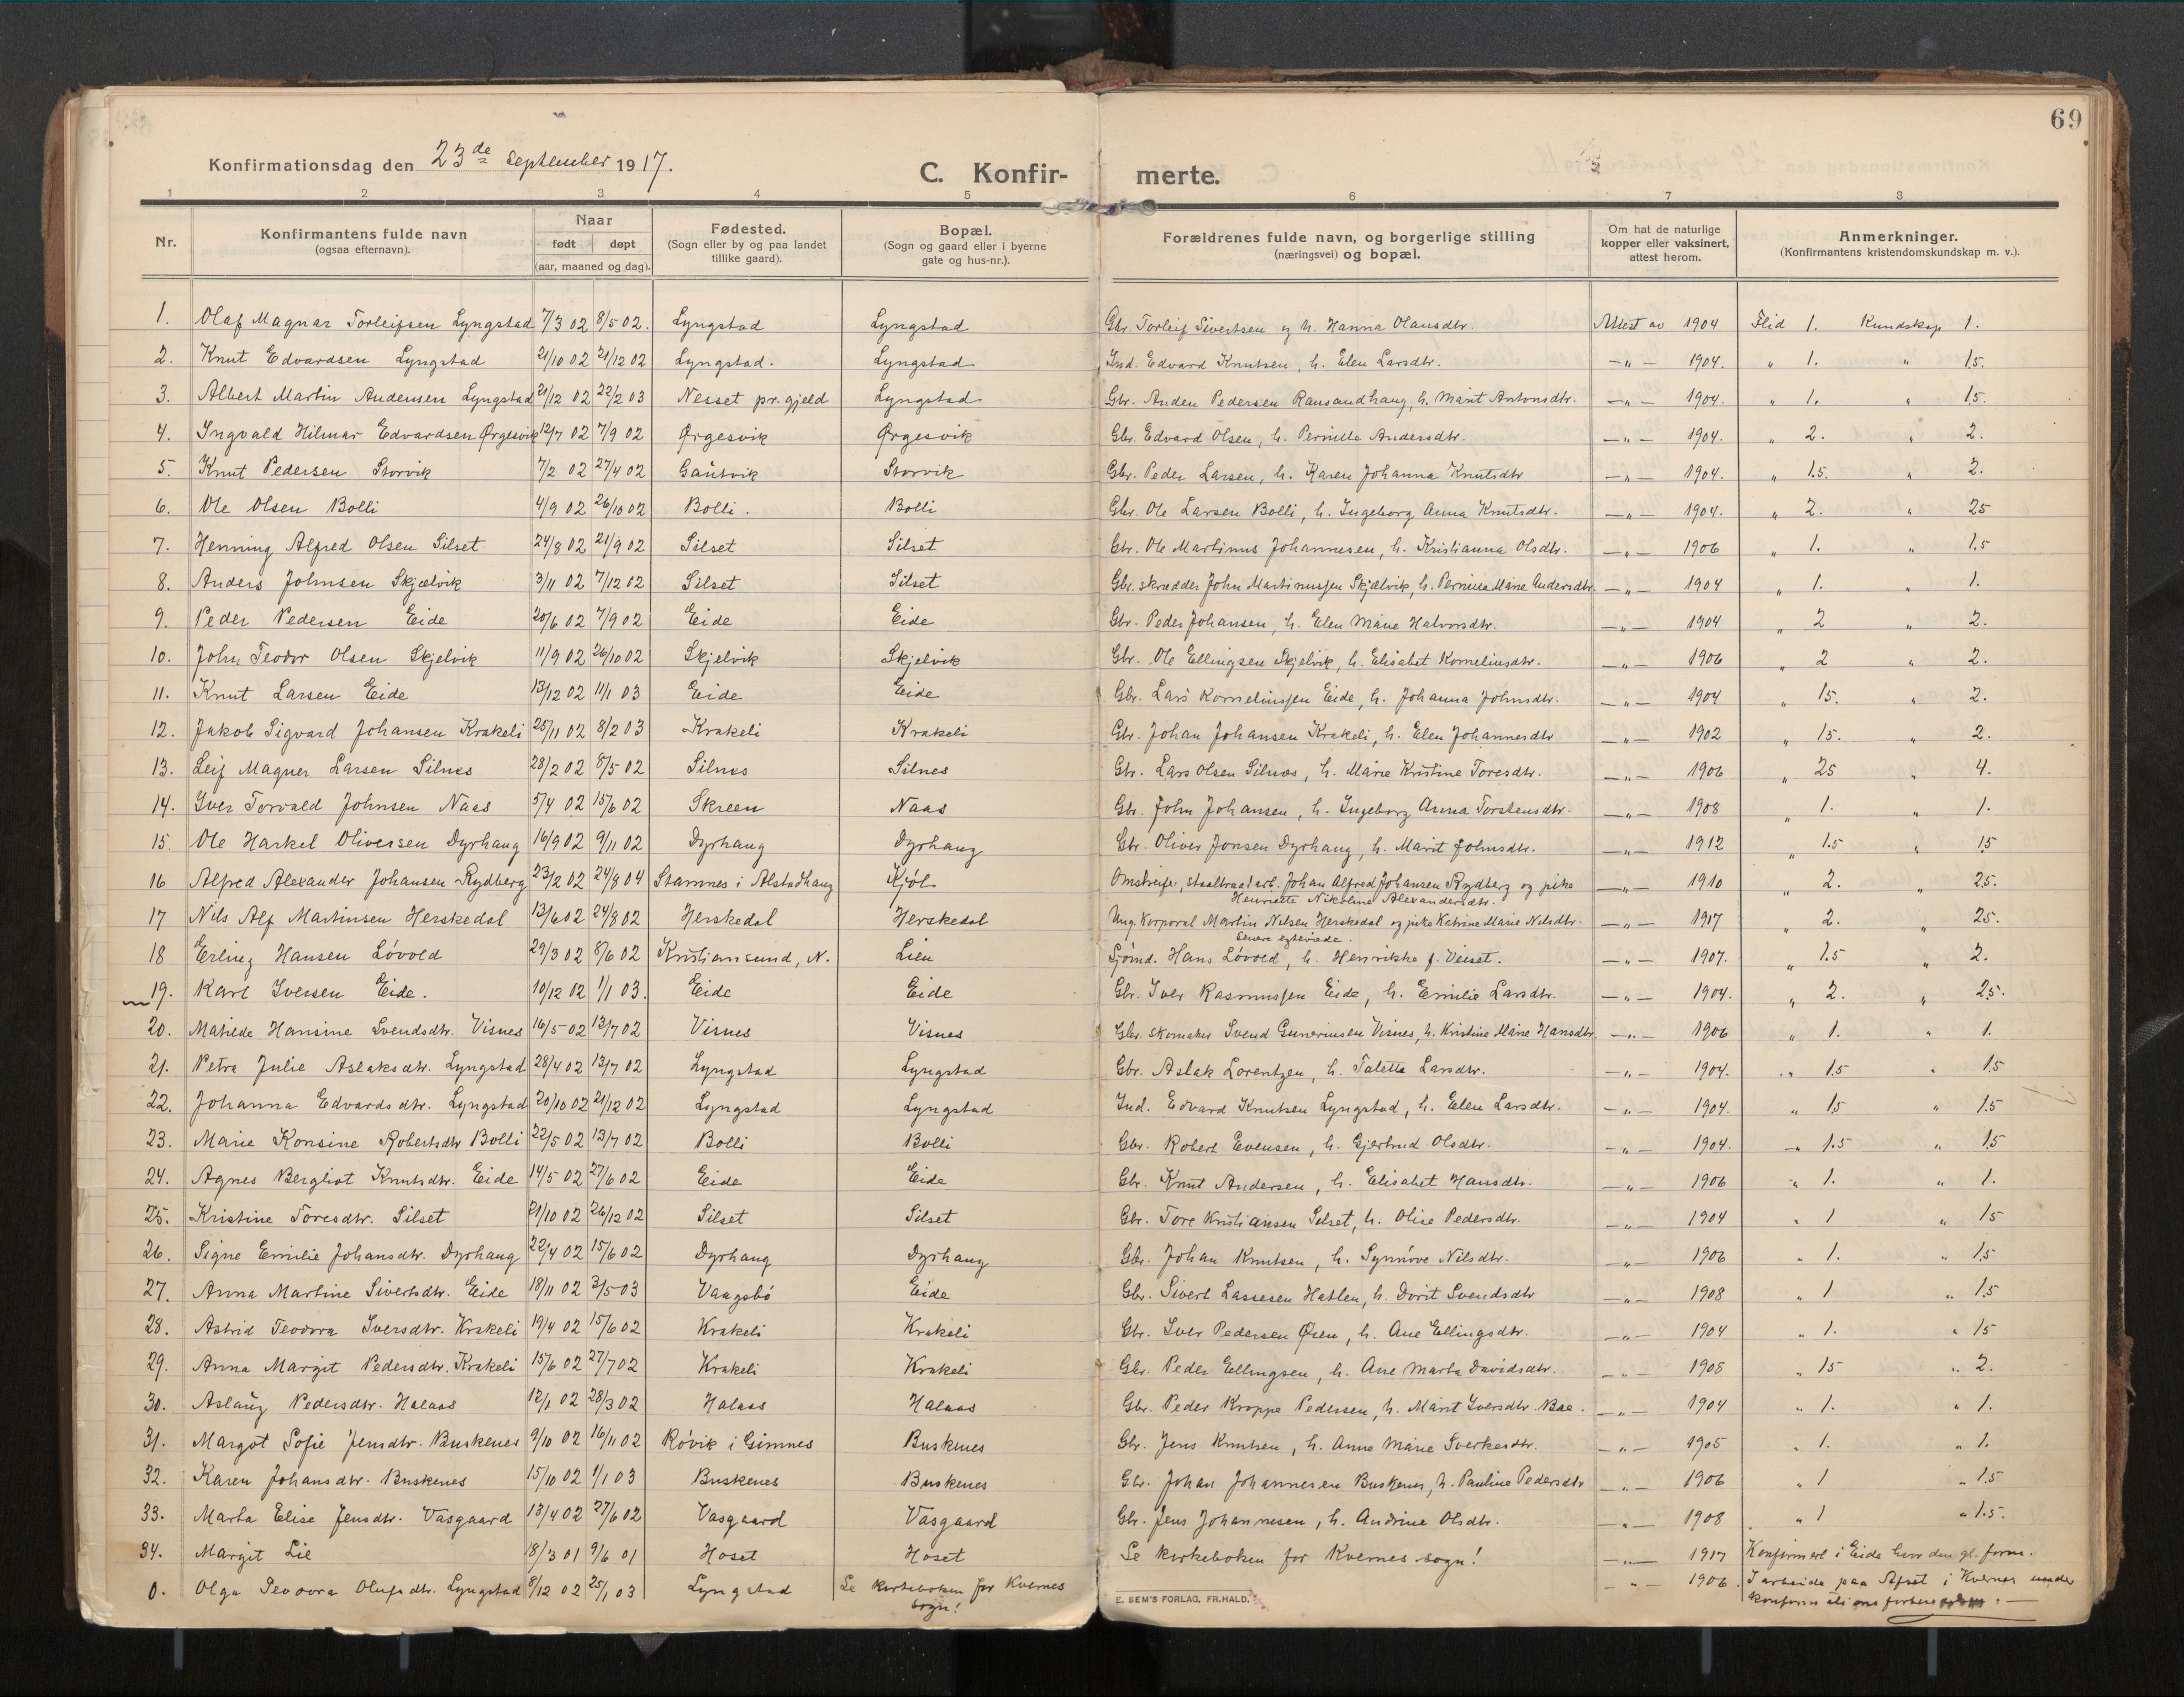 69
Konfirmationsdag den 23de September 1917.
C. Konfir- merte.
1 2 3 4 5 6 7 8
Nr. Konfirmantens fulde navn (ogsaa efternavn). Naar født døpt (aar, maaned og dag). Fødested. (Sogn eller by og paa landet tillike gaard). Bopæl. (Sogn og gaard eller i byerne gate og hus-nr.). Forældrenes fulde navn, og borgerlige stilling (næringsvei) og bopæl. Om hat de naturlige kopper eller vaksinert, attest herom. Anmerkninger. (Konfirmantens kristendomskundskap m. v.).
1. Olaf Magnar Torleifsen Lyngstad 7/3 02 8/5 02. Lyngstad Lyngstad Gbr. Torleif Sivertsen og h. Hanna Olausdtr. Attest av 1904 Flid 1. Kundskap 1.
2. Knut Edvardsen Lyngstad 21/10 02 21/12 02 Lyngstad. Lyngstad Ind. Edvard Knutsen, h. Elen Larsdtr. —„— 1904. „ 1. „ 1.5.
3. Albert Martin Andensen Lyngstad 21/12 02 22/2 03 Nesset pr.gjeld Lyngstad Gbr. Anden Pedersen Ransandhaug, h. Marit Antonsdtr. —„— 1904. „ 1. „ 1.5.
4. Ingvald Hilmar Edvardsen Ørgesvik 12/7 02 7/9 02 Ørgesvik Ørgesvik Gbr. Edvard Olsen, h. Pernille Andersdtr. —„— 1904. „ 2. „ 2.
5. Knut Pedersen Storvik 7/2 02 27/4 02 Gautvik Storvik Gbr. Peder Larsen, h. Karen Johanna Knutsdtr —„— 1904. „ 1.5. „ 2.
6. Ole Olsen Bolli 4/9 02 26/10 02 Bolli. Bolli Gbr. Ole Larsen Bolli, h. Ingeborg Anna Knutsdtr. —„— 1904. „ 2. „ 25
7. Henning Alfred Olsen Silset 24/8 02 21/9 02 Silset Silset Gbr. Ole Martinus Johannesen, h. Kristianna Olsdtr. —„— 1906 „ 1. „ 1.5
8. Anders Johnsen Skjælvik 3/11 02 7/12 02 Silset Silset Gbr. skrædder John Martinussen Skjælvik, h. Pernille Marie Andersdtr. —„— 1904 „ 1. „ 1.
9. Peder Pedersen Eide 20/6 02 7/9 02 Eide Eide Gbr. Peder Johansen, h. Elen Marie Halvorsdtr. —„— 1904 „ 2 „ 2.
10. John Teodor Olsen Skjelvik 11/9 02 26/10 02 Skjelvik Skjelvik Gbr. Ole Ellingsen Skjelvik, h. Elisabet Korneliusdtr. —„— 1906 „ 2 „ 2.
11. Knut Larsen Eide 13/12 02 11/1 03 Eide Eide Gbr. Lars Korneliussen Eide, h. Johanna Johnsdtr. —„— 1904 „ 15. „ 2.
12. Jakob Sigvard Johansen Krakeli 25/11 02 8/2 03 Krakeli Krakeli Gbr. Johan Johansen Krakeli, h. Elen Johannesdtr —„— 1902 „ 15. „ 2.
13. Leif Magner Larsen Silnes 28/2 02 8/5 02 Silnes Silnes Gbr. Lars Olsen Silnes, h. Marie Kristine Toresdtr. —„— 1906 „ 25 „ 4.
14. Iver Torvald Johnsen Naas 5/4 02 15/6 02 Skreen Naas Gbr. John Johansen, h. Ingeborg Anna Torstensdtr. —„— 1908 „ 1. „ 1.
15. Ole Harkel Oliversen Dyrhaug 16/9 02 9/11 02 Dyrhaug Dyrhaug Gbr. Oliver Jonsen Dyrhaug, h. Marit Johnsdtr. —„— 1912 „ 1.5 „ 15
16 Alfred Alexander Johansen Rydberg 23/2 02 24/8 04 Stamnes i Alstadhaug Kjøl Omstreifer, staaltraadarb. Johan Alfred Johansen Rydberg og pike —„— 1910 „ 2. „ 25.
Henriette Nikoline Alexandersdtr.
17 Nils Alf Martinsen Herskedal 13/6 02 24/8 02 Herskedal Herskedal Ung. Korporal Martin Nilsen Herskedal og pike Katrine Marie Nilsdtr. —„— 1917 „ 2. „ 25.
Senere egteviede.
18 Erling Hansen Løvold 29/3 02 8/6 02 Kristiansund, N. Lien Sjømd. Hans Løvold, h. Henrikke f. Veiset. —„— 1907. „ 1.5 „ 2.
19. Karl Iversen Eide. 10/12 02 1/1 03. Eide Eide Gbr. Iver Rasmussen Eide, h. Emilie Larsdtr. —„— 1904. „ 2. „ 25.
20. Matilde Hansine Svendsdtr. Visnes 16/5 02 13/7 02 Visnes Visnes Gbr. skomaker Svend Gunerinsen Visnes, h. Kristine Marie Hansdtr. —„— 1906 „ 1. „ 1.
21. Petra Julie Aslaksdtr. Lyngstad 28/4 02 13/7 02 Lyngstad Lyngstad Gbr. Aslak Lorentzen, h. Taletta Larsdtr. —„— 1904. „ 1.5 „ 1.5
22. Johanna Edvardsdtr. Lyngstad 20/10 02 21/12 02 Lyngstad Lyngstad Ind. Edvard Knutsen Lyngstad, h. Elen Larsdtr. —„— 1904. „ 1.5 „ 1.5
23. Marie Konsine Robertsdtr Bolli 22/5 02 13/7 02 Bolli Bolli Gbr. Robert Evensen, h. Gjertrud Olsdtr. —„— 1904. „ 1.5 „ 1.5
24. Agnes Bergliot Knutsdtr. Eide 14/5 02 27/6 02 Eide Eide Gbr. Knut Andersen, h. Elisabet Hansdtr. —„— 1906 „ 1. „ 1.
25. Kristine Toresdtr. Silset 21/10 02 26/12 02 Silset Silset Gbr. Tore Kristiansen Silset, h. Olise Pedersdtr. —„— 1904 „ 1 „ 15
26. Signe Emilie Johansdtr. Dyrhaug 22/4 02 15/6 02 Dyrhaug Dyrhaug Gbr. Johan Knutsen, h. Synnøve Nilsdtr. —„— 1906 „ 1. „ 1.5
27. Anna Martine Sivertsdtr. Eide 18/11 02 3/5 03 Vaagsbø Eide Gbr. Sivert Lassesen Hatlen, h. Dorit Svendsdtr —„— 1908 „ 1 „ 1.5
28. Astrid Teodora Iversdtr. Krakeli 19/4 02 15/6 02 Krakeli Krakeli Gbr. Iver Pedersen Øien, h. Ane Ellingsdtr. —„— 1904 „ 1. „ 15
29. Anna Margit Pedersdtr. Krakeli 15/6 02 27/7 02 Krakeli Krakeli Gbr. Peder Ellingsen, h. Ane Marta Davidsdtr. —„— 1905 „ 15 „ 2.
30. Aslaug Pedersdtr. Halaas 12/1 02 28/3 02 Halaas Halaas Gbr. Peder Kroppe Pedersen, h. Marit Iversdtr. Bae. —„— 1904 „ 1. „ 1.
31. Margot Sofie Jensdtr. Buskenes 9/10 02 16/11 02 Røvik i Gimnes Buskenes Gbr. Jens Knutsen, h. Anne Marie Sverkesdtr. —„— 1905 „ 1. „ 1.
32. Karen Johansdtr. Buskenes 15/10 02 1/1 03 Buskenes Buskenes Gbr. Johan Johannesen Buskenes, h. Pauline Pedersdtr —„— 1906 „ 1 „ 1.5
33. Marta Elise Jensdtr. Vasgaard 13/4 02 27/6 02 Vasgaard Vasgaard Gbr. Jens Johannesen, h. Andrine Olsdtr. —„— 1908 „ 1 „ 1.5.
34. Margit Lie 18/3 01 9/6 01 Hoset Hoset Se kirkeboken for Kvernes sogn! —„— 1917 Konfirmert i Eide hvor den gl. form.
0. Olga Teodora Olufsdtr. Lyngstad 8/12 02 25/1 03 Lyngstad Se kirkeboken for Kvernes sogn! —„— 1906. I arbeide paa i Kvernes under
konfirmations
E. SEM'S FORLAG, FR.HALD.